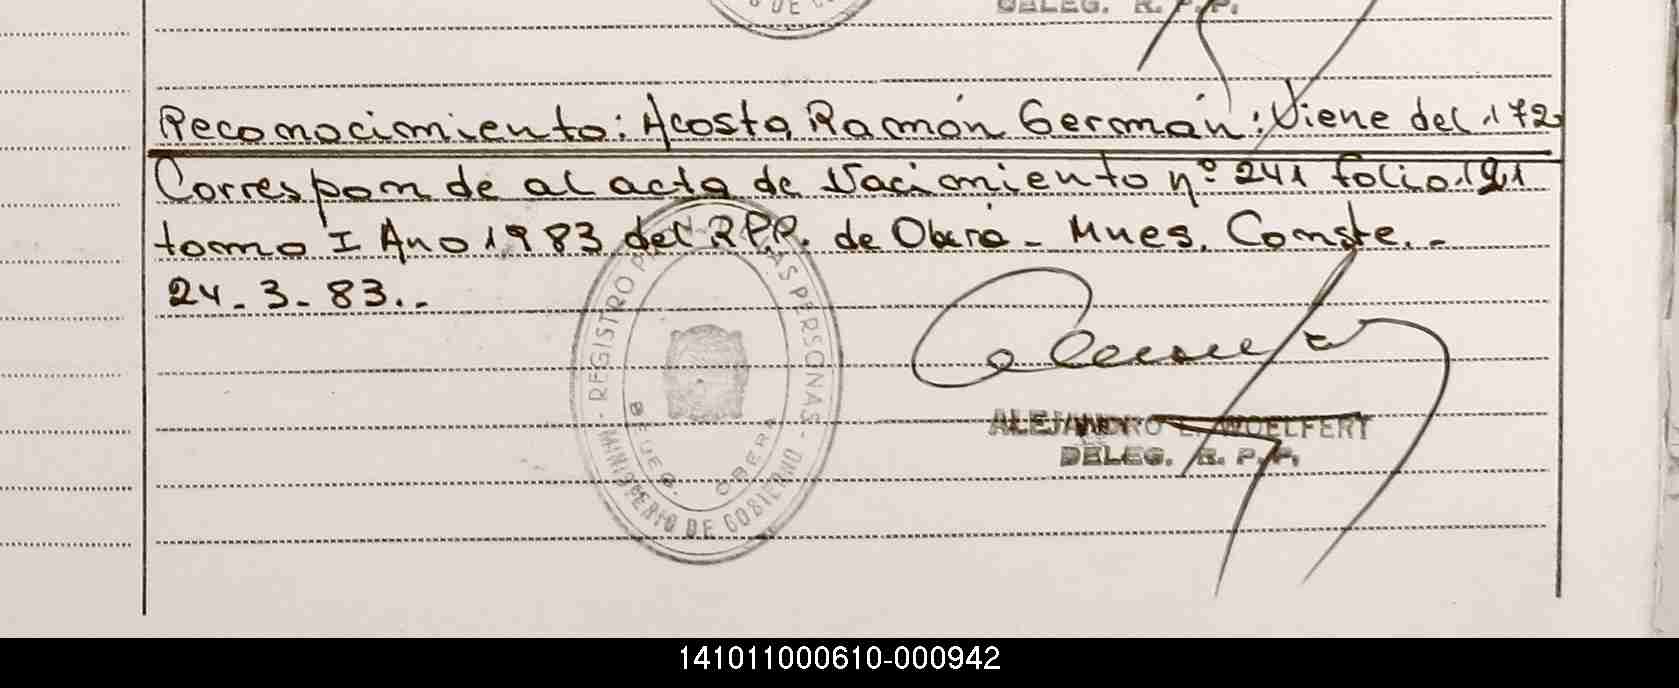 DELEG. R. P. P.
Reconocimiento: Acosta Ramón Germán: Viene del 172
Corresponde al acta de Nacimiento nº 241 folio 121
tomo I Año 1983 del R.P.P. de Oberá - Mnes. Conste. -
24 - 3 - 83. -
REGISTRO P AS PERSONAS
MINISTERIO DE GOBIERNO
OBERA
ALEJANDRO L. WOELFERT
DELEG. R. P. P.
141011000610-000942